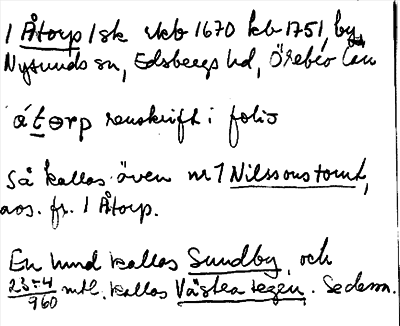 1 Åtorp 1 sk skb 1670 kb 1751, by,
Nysunds sn, Edsbergs hd, Örebro län
átorp renskrift i folio
Så kallas även nr 1 Nilssonstomt,
avs. fr. 1 Åtorp.
En hmd kallas Sundby, och
23:4/960 mtl. kallas Västra tegen. Se dessa.